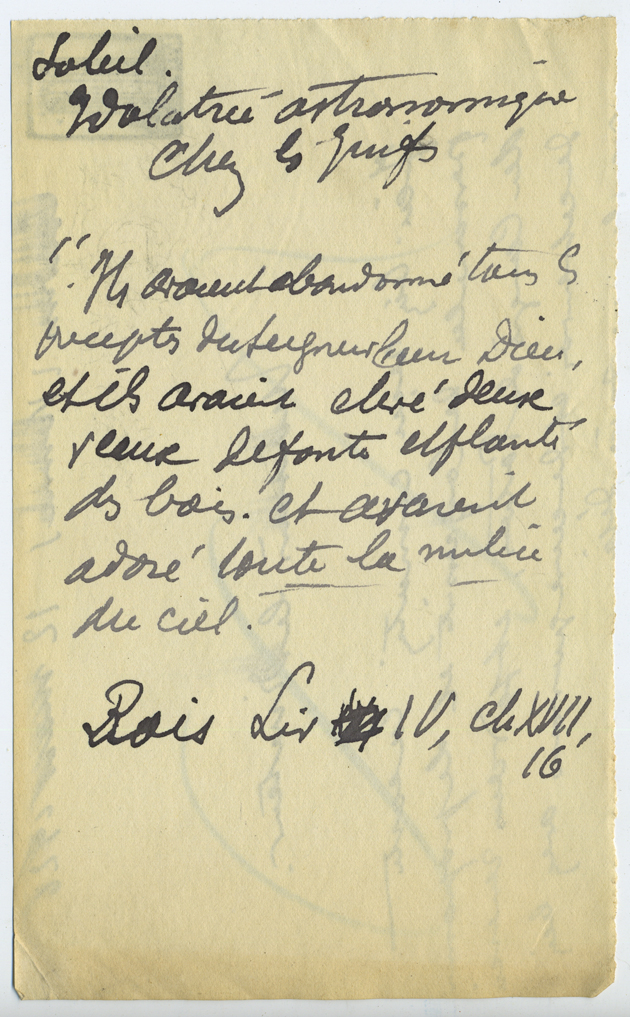 Soleil.
Idolatrie astronomique
Chez les Juifs
". Ils avaient abandonné tous les
préceptes du Seigneur leur Dieu,
et ils avaient élevé deux
veaux de fonte et planté
des bois. et avaient
adoré toute la milice
du ciel.
Rois Liv IV, ch XVII,
16